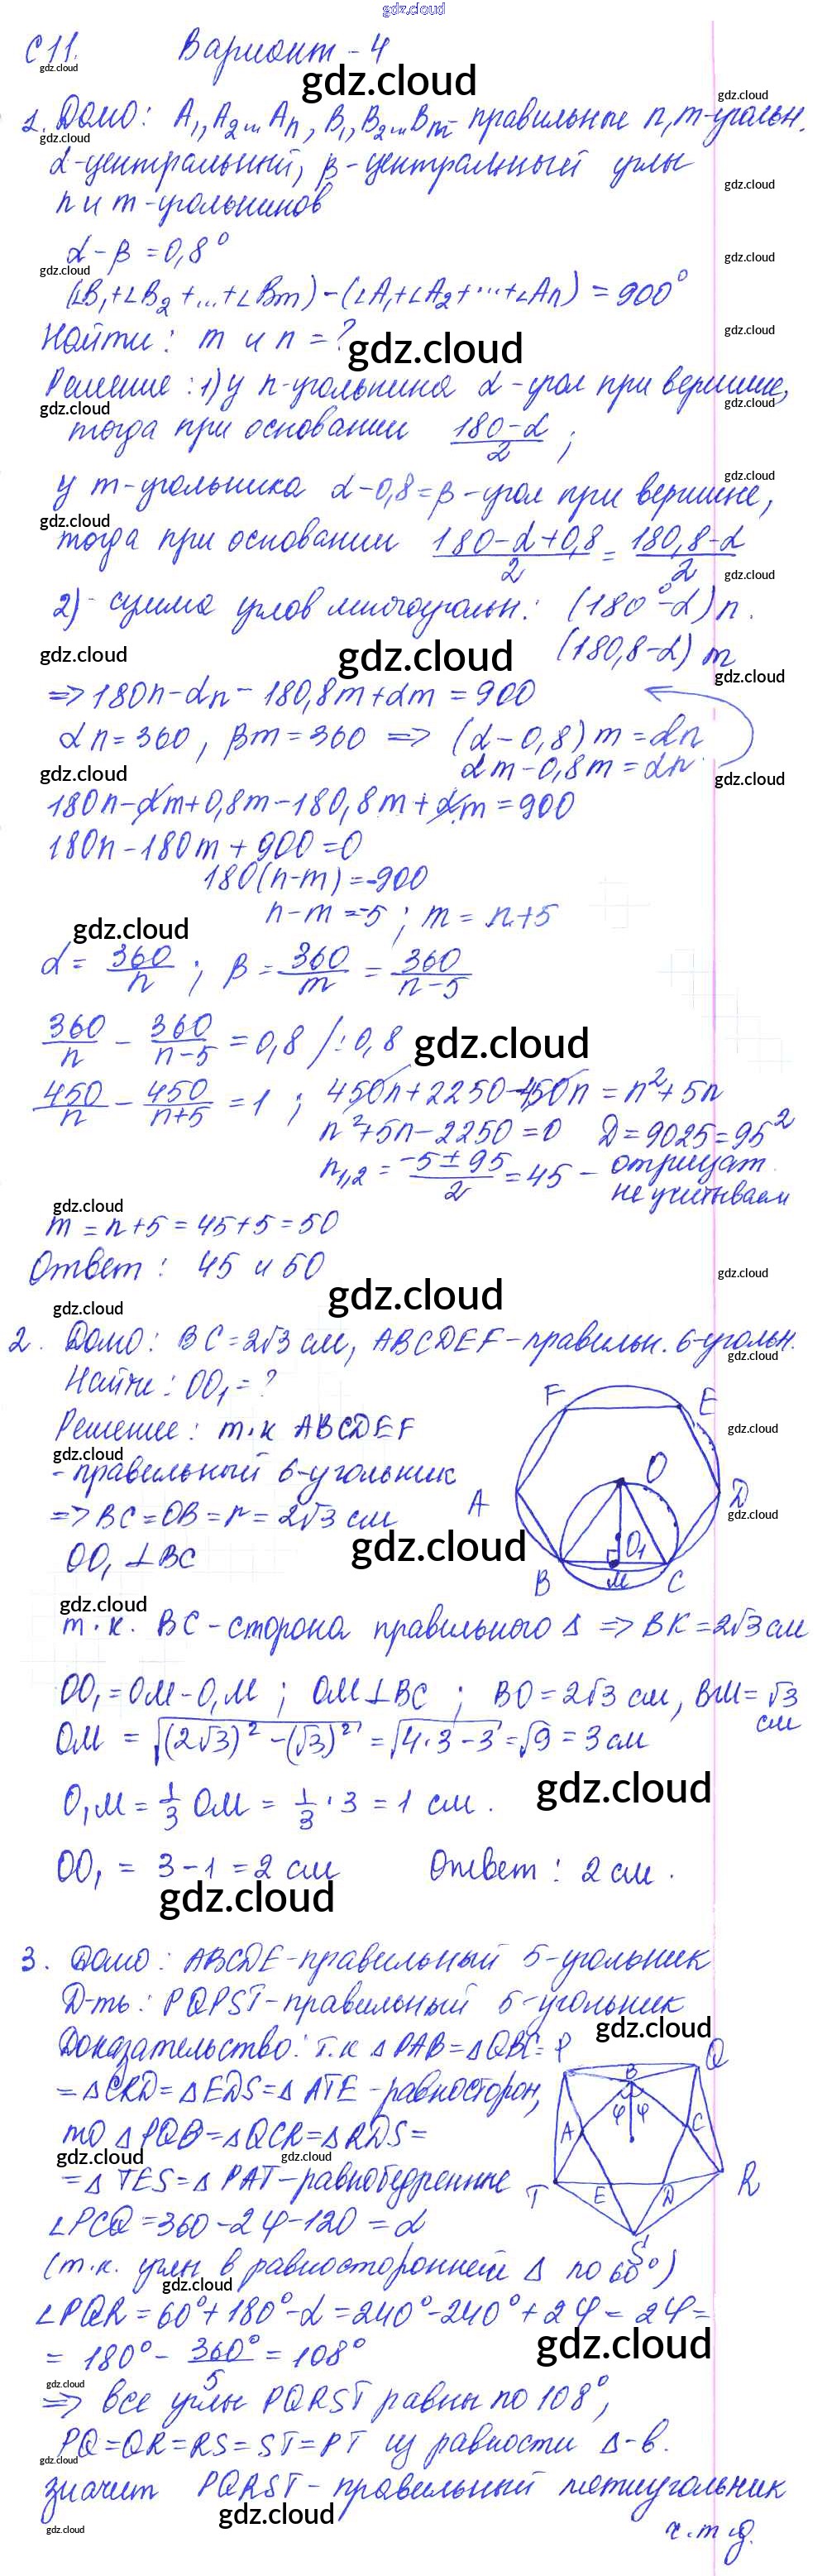 gdz.cloud
С 11. Вариант - 4
1. Дано: A₁, A₂ ... Aₙ, B₁, B₂ ... Bₘ правильные n, m-угольн.
α-центральный, β-центральный углы
n и m-угольников
α - β = 0,8°
(∠B₁+∠B₂+...+∠Bm) - (∠A₁+∠A₂+...+∠An) = 900°
Найти: m и n = ?
gdz.cloud
Решение: 1) у n-угольника α-угол при вершине,
тогда при основании (180-α)/2 ;
у m-угольника α-0,8=β-угол при вершине,
тогда при основании (180-α+0,8)/2 = (180,8-α)/2
2) сумма углов многоугольн.: (180°-α)n.
(180,8-α)m
gdz.cloud
=> 180n-αn - 180,8m+αm = 900
αn=360, βm=360 => (α-0,8)m=αn
αm-0,8m=αn
180n-αm+0,8m-180,8m+αm=900
180n-180m+900=0
180(n-m)=-900
n-m=-5 ; m = n+5
α = 360/n ; β = 360/m = 360/(n-5)
360/n - 360/(n-5) = 0,8 /:0,8
gdz.cloud
450/n - 450/(n+5) = 1 ; 450n+2250-450n = n²+5n
n²+5n-2250=0 D=9025=95²
n₁,₂ = (-5±95)/2 = 45 - отрицат.
не учитываем
m = n+5 = 45+5 = 50
Ответ: 45 и 50
gdz.cloud
2. Дано: BC=2√3 см, ABCDEF-правильн. 6-угольн.
Найти: OO₁=?
Решение: т.к ABCDEF
- правильный 6-угольник
=> BC=OB=r=2√3 см
OO₁ ⊥ BC
F E A O D O₁ B M C
gdz.cloud
т.к. BC-сторона правильного Δ => BK=2√3 см
OO₁=OM-O₁M ; OM⊥BC ; BO=2√3 см, BM=√3
см
OM = √((2√3)²-(√3)²) = √(4·3-3) = √9 = 3 см
O₁M = 1/3 OM = 1/3 · 3 = 1 см.
gdz.cloud
OO₁ = 3-1 = 2 см Ответ: 2 см.
gdz.cloud
3. Дано: ABCDE-правильный 5-угольник
Д-ть: PQPST-правильный 5-угольник
gdz.cloud
Доказательство: т.к ΔPAB=ΔQBC=
=ΔCRD=ΔEDS=ΔATE-равносторон,
то ΔPQB=ΔQCR=ΔRDS=
=ΔTES=ΔPAT-равнобедренные
P B Q A φ φ C T E D R S
∠PCQ=360-2φ-120=α
(т.к. углы в равностороннем Δ по 60°)
∠PQR=60°+180°-α=240°-240°+2φ=2φ=
= 180° - 360°/5 = 108°
gdz.cloud
=> все углы PQRST равны по 108°,
PQ=QR=RS=ST=PT из равности Δ-в.
значит PQRST-правильный пятиугольник
gdz.cloud
ч.т.д.